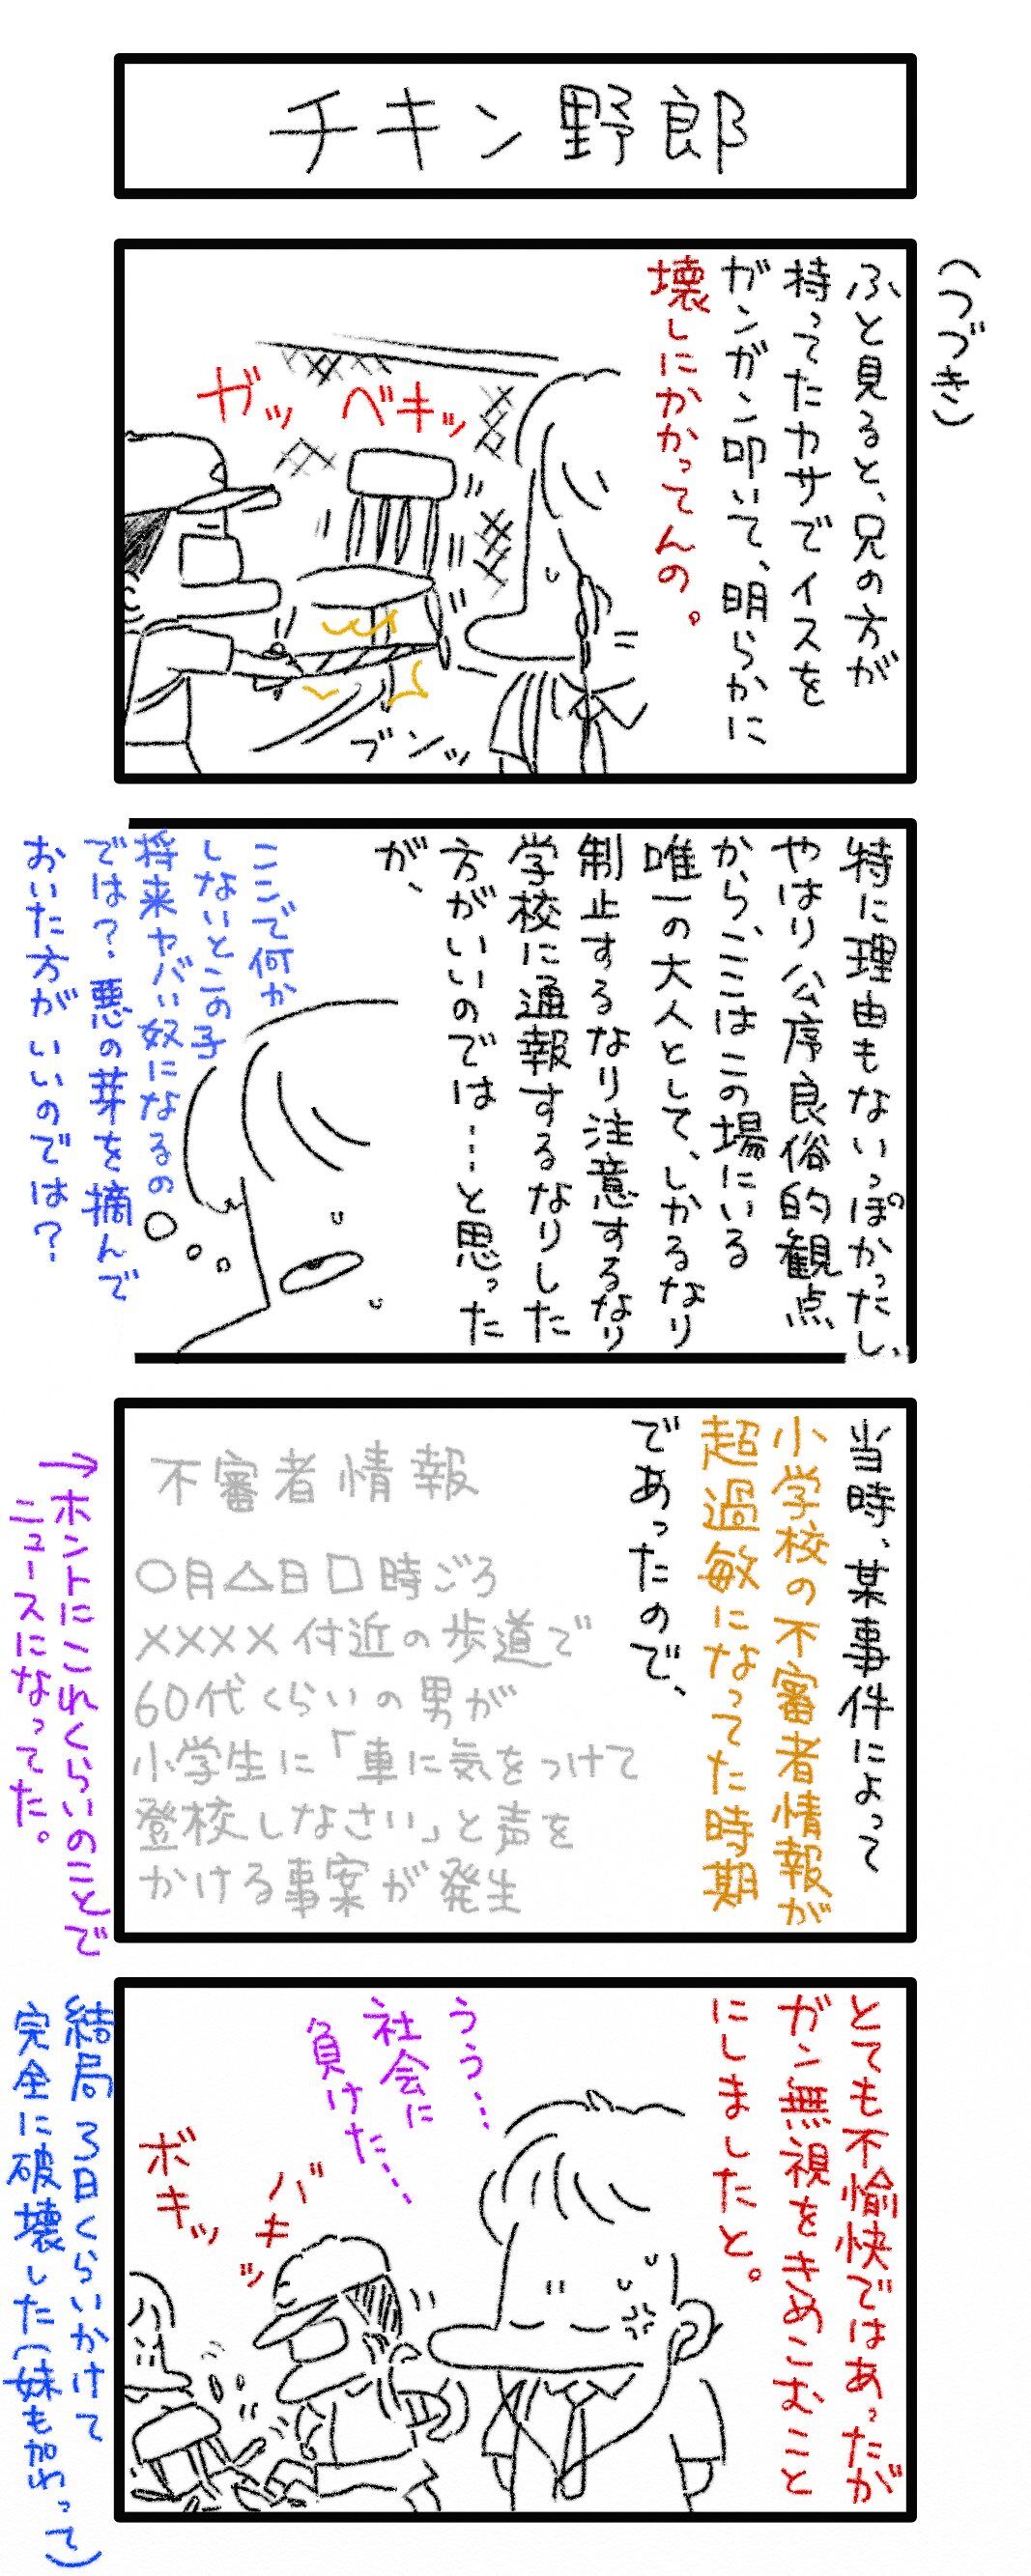 チキン野郎
(つづき)
ふと見ると、兄の方が
持ってたカサでイスを
ガンガン叩いて、明らかに
壊しにかかってんの。
ベキッ
ガッ
ブンッ
特に理由もないっぽかったし、
やはり公序良俗的観点
から、ここはこの場にいる
唯一の大人として、しかるなり
制止するなり注意するなり
学校に通報するなりした
方がいいのでは…と思った
が、
ここで何か
しないとこの子
将来ヤバい奴になるの
では?悪の芽を摘んで
おいた方がいいのでは?
当時、某事件によって
小学校の不審者情報が
超過敏になってた時期
であったので、
不審者情報
〇月△日□時ごろ
××××付近の歩道で
60代くらいの男が
小学生に「車に気をつけて
登校しなさい」と声を
かける事案が発生
→ホントにこれくらいのことで
ニュースになってた。
とても不愉快ではあったが
ガン無視をきめこむこと
にしましたと。
うう…
社会に
負けた…
バキッ
ボキッ
結局3日くらいかけて
完全に破壊した(妹も加わって)